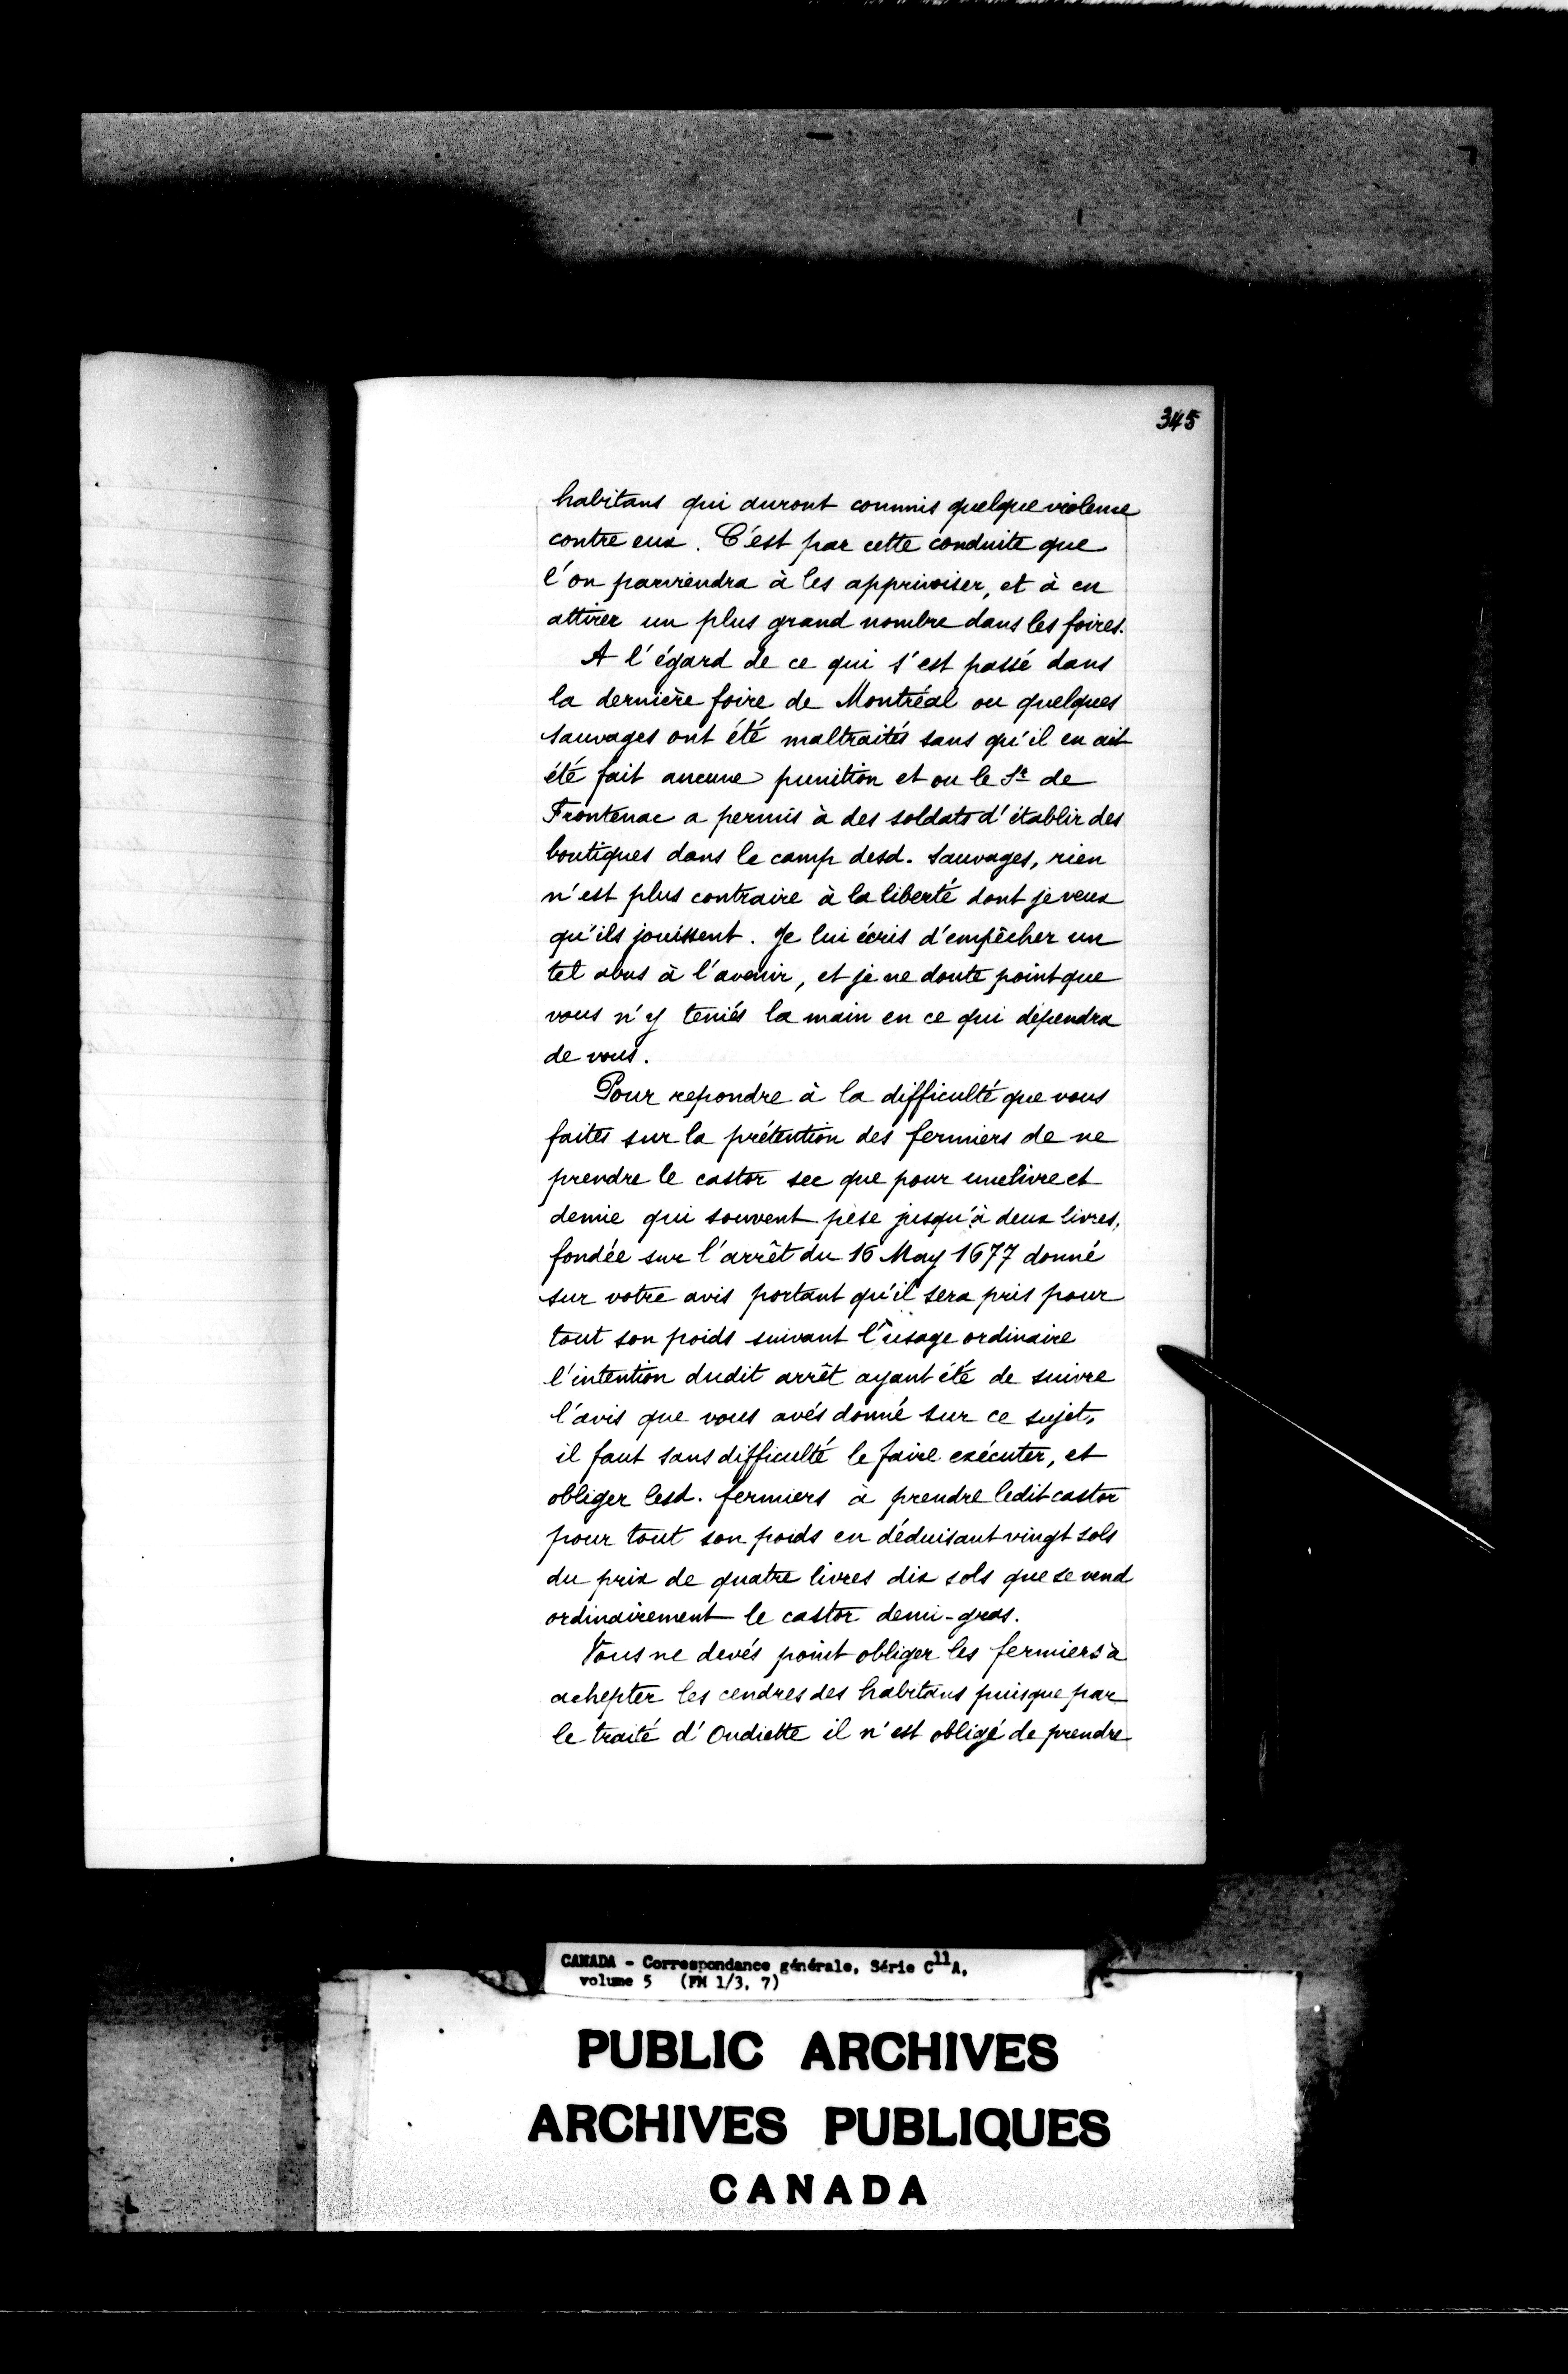 345
habitans qui auront commis quelque violence
contre eux. C'est par cette conduite que
l'on parviendra à les apprivoiser, et à en
attirer un plus grand nombre dans les foires.
A l'égard de ce qui s'est passé dans
la dernière foire de Montréal ou quelques
sauvages ont été maltraités sans qu'il en ait
été fait aucune punition et ou le Sr de
Frontenac a permis à des soldats d'établir des
boutiques dans le camp desd. sauvages, rien
n'est plus contraire à la liberté dont je veux
qu'ils jouissent. Je lui écris d'empêcher un
tel abus à l'avenir, et je ne doute point que
vous n'y teniés la main en ce qui dépendra
de vous.
Pour repondre à la difficulté que vous
faites sur la prétention des fermiers de ne
prendre le castor sec que pour une livre et
demie qui souvent pèse jusqu'à deux livres,
fondée sur l'arrêt du 16 May 1677 donné
sur votre avis portant qu'il sera pris pour
tout son poids suivant l'usage ordinaire
l'intention dudit arrêt ayant été de suivre
l'avis que vous avés donné sur ce sujet,
il faut sans difficulté le faire exécuter, et
obliger lesd. fermiers à prendre ledit castor
pour tout son poids en déduisant vingt sols
du prix de quatre livres dix sols que se vend
ordinairement le castor demi-gras.
Vous ne devés point obliger les fermiers à
achepter les cendres des habitans puisque par
le traité d'Oudiette il n'est obligé de prendre
CANADA - Correspondance générale, Série C11A,
volume 5 (FM 1/3, 7)
PUBLIC ARCHIVES
ARCHIVES PUBLIQUES
CANADA